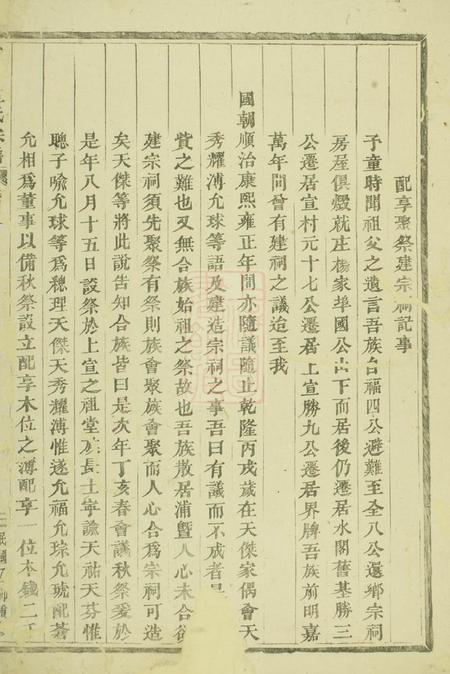 配享聚祭建宗祠記事
予童時聞祖父之遺言吾族自福四公避難至全八公還鄉宗祠
房屋俱燬就庄楊家埠國公山下而居後仍遷居水閣舊基勝三
公遷居宣村元十七公遷居上宣勝九公遷居界牌吾族前明嘉
萬年間曾有建祠之議迨至我
國朝順治康熙雍正年間亦隨議隨止乾隆丙戌歲在天傑家偶會天
秀耀溥允球等語及建造宗祠之事吾曰有議而不成者
貲之難也又無合族始祖之祭故也吾族散居浦暨人心未合
建宗祠須先聚祭有祭則族會聚族會聚而人心合為宗祠可造
矣天傑等將此說告知合族皆曰是次年丁亥春會議秋祭爰於
是年八月十五日設祭於上宣之祖堂族長士寧諭天祐天芬惟
聰子喻允球等為總理天傑天秀耀溥惟遂允福允琮允琥配蒼
允相為董事以備秋祭設立配享木位之溥配享一位本錢二
氏宗譜
民國